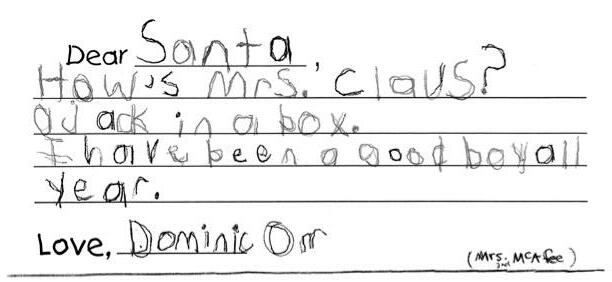 Dear Santa,
How's Mrs. Claus?
a Jack in a box.
I have been a good boy all
year.
Love, Dominic Orr
(Mrs. McAfee)